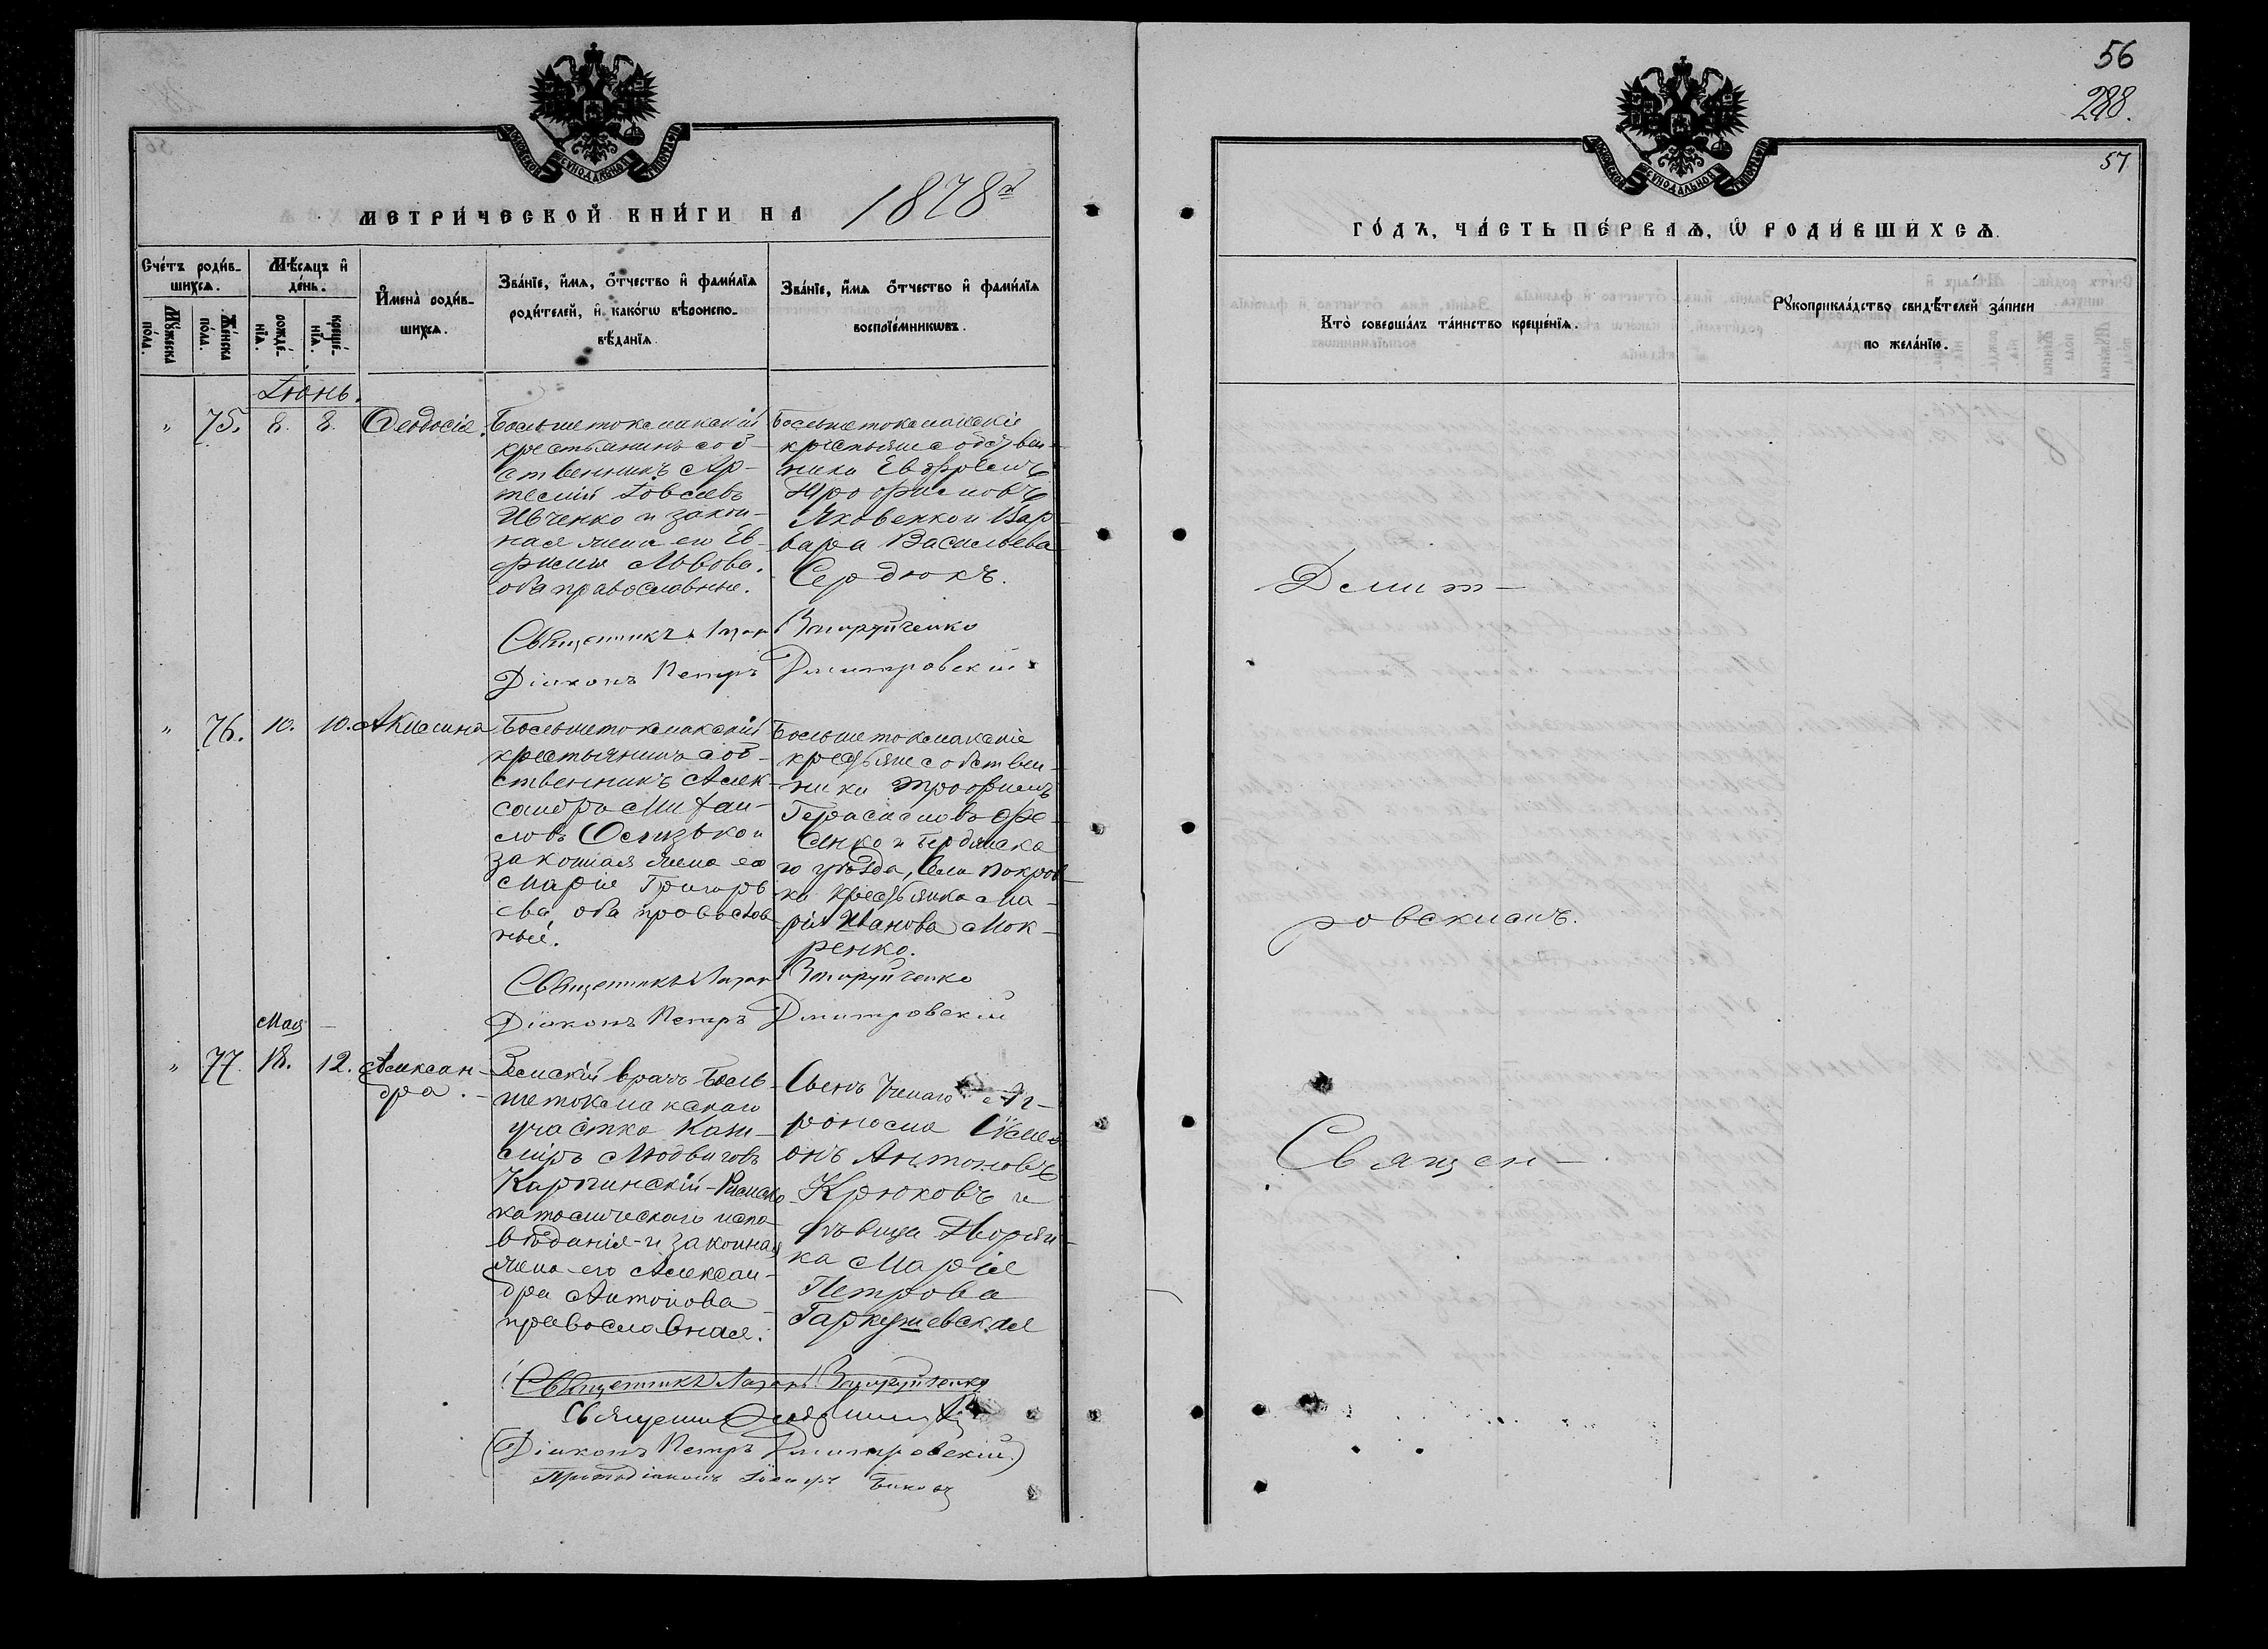 56
288.
57
МОСКОВСКОЙ СѴНОДАЛЬНОЙ ТИПОГРАФІИ
МОСКОВСКОЙ СѴНОДАЛЬНОЙ ТИПОГРАФІИ
МЕТРИ́ЧЕСКОЙ КНИ́ГИ НА 1878й
ГО́ДЪ, ЧА́СТЬ ПЕ́РВАѦ, Ѡ РОДИ́ВШИХСѦ.
Сче́тъ роди́в-
шихсѧ.
Мꙋ́жеска по́ла.
Же́нска по́ла.
Мѣ́сѧцъ и҆
де́нь.
рожде́-нїѧ.
креще́-нїѧ.
И҆мена̀ роди́в-
шихсѧ.
Зва́нїе, и҆́мѧ, о҆́тчество и҆ фами́лїѧ
роди́телей, и҆ како́гѡ вѣроиспо-
вѣ́данїѧ.
Зва́нїе, и҆́мѧ о҆́тчество и҆ фами́лїѧ
воспрїе́мникѡвъ.
Кто̀ соверша́лъ та́инство креще́нїѧ.
Рꙋкоприкла́дство свидѣ́телей за́писи
по жела́нїю.
Іюнь.
" 75. 8. 8. Ѳеодосія.
Большетокмакскій
крестьянинъ соб-
ственникъ Ар-
темій Іовлевъ
Ивченко и закон-
ная жена его Ев-
фимія Львова.
оба православные.
Большетокмакскіе
крестьяне собствен-
ники Евфроимъ
Трофимовъ
Яковенко и Вар-
вара Васильева
Сердюкъ.
Священникъ Лазарь Запорунченко
Діаконъ Петръ Дмитровскій
" 76. 10. 10. Акилина
Большетокмакскій
крестьянинъ соб-
ственникъ Алек-
сандръ Михаи-
ловъ Ослизько и
законная жена его
Марія Григорь-
ева, оба православ-
ные.
Большетокмакскіе
крестьяне собствен-
ники Трофимъ
Герасимовъ Фе-
сенко и Бердянска-
го уѣзда, села Покров-
ки крестьянка Ма-
рія Иванова Мок-
ренко.
Священникъ Лазарь Запорунченко
Діаконъ Петръ Дмитровскій
Мая —
" 77. 18. 12. Алексан-
дра.
Земскій врачъ Боль-
шетокмакскаго
участка Кази-
міръ Людвиговъ
Карпинскій - Римско-
католическаго испо-
вѣданія - и законная
жена его Алексан-
дра Антонова
православная.
Сынъ Ученаго Аг-
ронома Симе-
онъ Антоновъ
Крюковъ и
дѣвица Дворян-
ка Марія
Петрова
Гаркушевская
(Священникъ Лазарь Запорунченко
Священникъ
(Діаконъ Петръ Дмитровскій.)
Протодіаконъ
Дмит-
ровскимъ.
Священ-